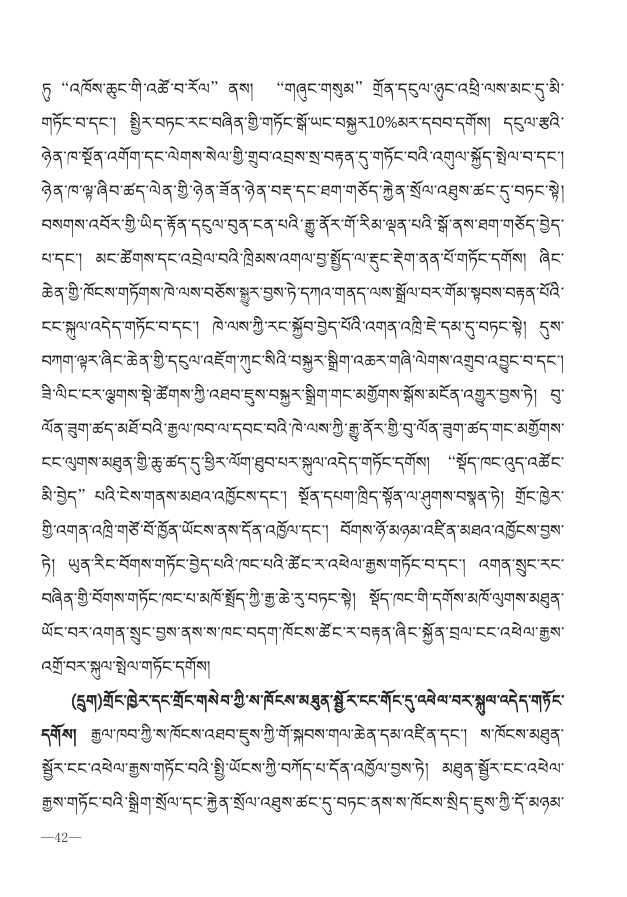 ཏུ “འཁོས་ཆུང་གི་འཚོ་བ་རོལ” ནས། “གཞུང་གསུམ” གྲོན་དངུལ་ཉུང་འཕྲི་ལས་མང་དུ་མི་
གཏོང་བ་དང་། སྤྱིར་བཏང་རང་བཞིན་གྱི་གཏོང་སྒོ་ཡང་བསྐྱར10%མར་དབབ་དགོས། དངུལ་རྩའི་
ཉེན་ཁ་སྔོན་འགོག་དང་ལེགས་སེལ་གྱི་གྲུབ་འབྲས་སྲ་བརྟན་དུ་གཏོང་བའི་འགུལ་སྐྱོད་སྤེལ་བ་དང་།
ཉེན་ཁ་ལྟ་ཞིབ་ཚད་ལེན་གྱི་ཉེན་ཟོན་ཉེན་བརྡ་དང་ཐག་གཅོད་རྐྱེན་སྲོལ་འཐུས་ཚང་དུ་བཏང་སྟེ།
བསགས་འབོར་གྱི་ཡིད་རྟོན་དངུལ་བུན་ངན་པའི་རྒྱུ་ནོར་གོ་རིམ་ལྡན་པའི་སྒོ་ནས་ཐག་གཅོད་བྱེད་
པ་དང་། མང་ཚོགས་དང་འབྲེལ་བའི་ཁྲིམས་འགལ་བྱ་སྤྱོད་ལ་རྡུང་རྡེག་ནན་པོ་གཏོང་དགོས། ཞིང་
ཆེན་གྱི་ཁོངས་གཏོགས་ཁེ་ལས་བཅོས་སྒྱུར་བྱས་ཏེ་དཀའ་གནད་ལས་སྒྲོལ་བར་གོམ་སྟབས་བརྟན་པོའི་
ངང་སྐུལ་འདེད་གཏོང་བ་དང་། ཁེ་ལས་ཀྱི་རང་སྐྱོབ་བྱེད་པོའི་འགན་འཁྲི་ཇེ་དམ་དུ་བཏང་སྟེ། དུས་
བཀག་ལྟར་ཞིང་ཆེན་གྱི་དངུལ་འཇོག་ཀུང་སིའི་བསྐྱར་སྒྲིག་འཆར་གཞི་ལེགས་འགྲུབ་འབྱུང་བ་དང་།
ཟི་ལིང་ངར་ལྕགས་སྡེ་ཚོགས་ཀྱི་འཐབ་ཇུས་བསྐྱར་སྒྲིག་གང་མགྱོགས་སྒོས་མངོན་འགྱུར་བྱས་ཏེ། བུ་
ལོན་ཟུག་ཚད་མཐོ་བའི་རྒྱལ་ཁབ་ལ་དབང་བའི་ཁེ་ལས་ཀྱི་རྒྱུ་ནོར་གྱི་བུ་ལོན་ཟུག་ཚད་གང་མགྱོགས་
ངང་ལུགས་མཐུན་གྱི་ཆུ་ཚད་དུ་ཕྱིར་ལོག་ཐུབ་པར་སྐུལ་འདེད་གཏོང་དགོས། “སྡོད་ཁང་འུད་འཚོང་
མི་བྱེད” པའི་ངེས་གནས་མཐའ་འཁྱོངས་དང་། སྔོན་དཔག་ཁྲིད་སྟོན་ལ་ཤུགས་བསྣན་ཏེ། གྲོང་ཁྱེར་
གྱི་འགན་འཁྲི་གཙོ་བོ་ཁྱོན་ཡོངས་ནས་དོན་འཁྱོལ་དང་། བོགས་ཉོ་མཉམ་འཛིན་མཐའ་འཁྱོངས་བྱས་
ཏེ། ཡུན་རིང་བོགས་གཏོང་བྱེད་པའི་ཁང་པའི་ཚོང་ར་འཕེལ་རྒྱས་གཏོང་བ་དང་། འགན་སྲུང་རང་
བཞིན་གྱི་བོགས་གཏོང་ཁང་པ་མཁོ་སྤྲོད་ཀྱི་རྒྱ་ཆེ་རུ་བཏང་སྟེ། སྡོད་ཁང་གི་དགོས་མཁོ་ལུགས་མཐུན་
ཡོང་བར་འགན་སྲུང་བྱས་ནས་ས་ཁང་བདག་ཁོངས་ཚོང་ར་བརྟན་ཞིང་སྐྱོན་བྲལ་ངང་འཕེལ་རྒྱས་
འགྲོ་བར་སྐུལ་སྤེལ་གཏོང་དགོས།
(དྲུག)གྲོང་ཁྱེར་དང་གྲོང་གསེབ་ཀྱི་ས་ཁོངས་མཐུན་སྦྱོར་ངང་གོང་དུ་འཕེལ་བར་སྐུལ་འདེད་གཏོང་
དགོས། རྒྱལ་ཁབ་ཀྱི་ས་ཁོངས་འཐབ་ཇུས་ཀྱི་གོ་སྐབས་གལ་ཆེན་དམ་འཛིན་དང་། ས་ཁོངས་མཐུན་
སྦྱོར་ངང་འཕེལ་རྒྱས་གཏོང་བའི་སྤྱི་ཡོངས་ཀྱི་བཀོད་པ་དོན་འཁྱོལ་བྱས་ཏེ། མཐུན་སྦྱོར་ངང་འཕེལ་
རྒྱས་གཏོང་བའི་སྒྲིག་སྲོལ་དང་རྐྱེན་སྲོལ་འཐུས་ཚང་དུ་བཏང་ནས་ས་ཁོངས་སྲིད་ཇུས་ཀྱི་དོ་མཉམ་
—42—